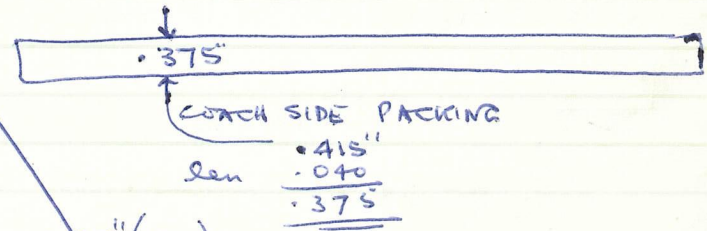 .375"
COACH SIDE PACKING
.415"
less .040
.375